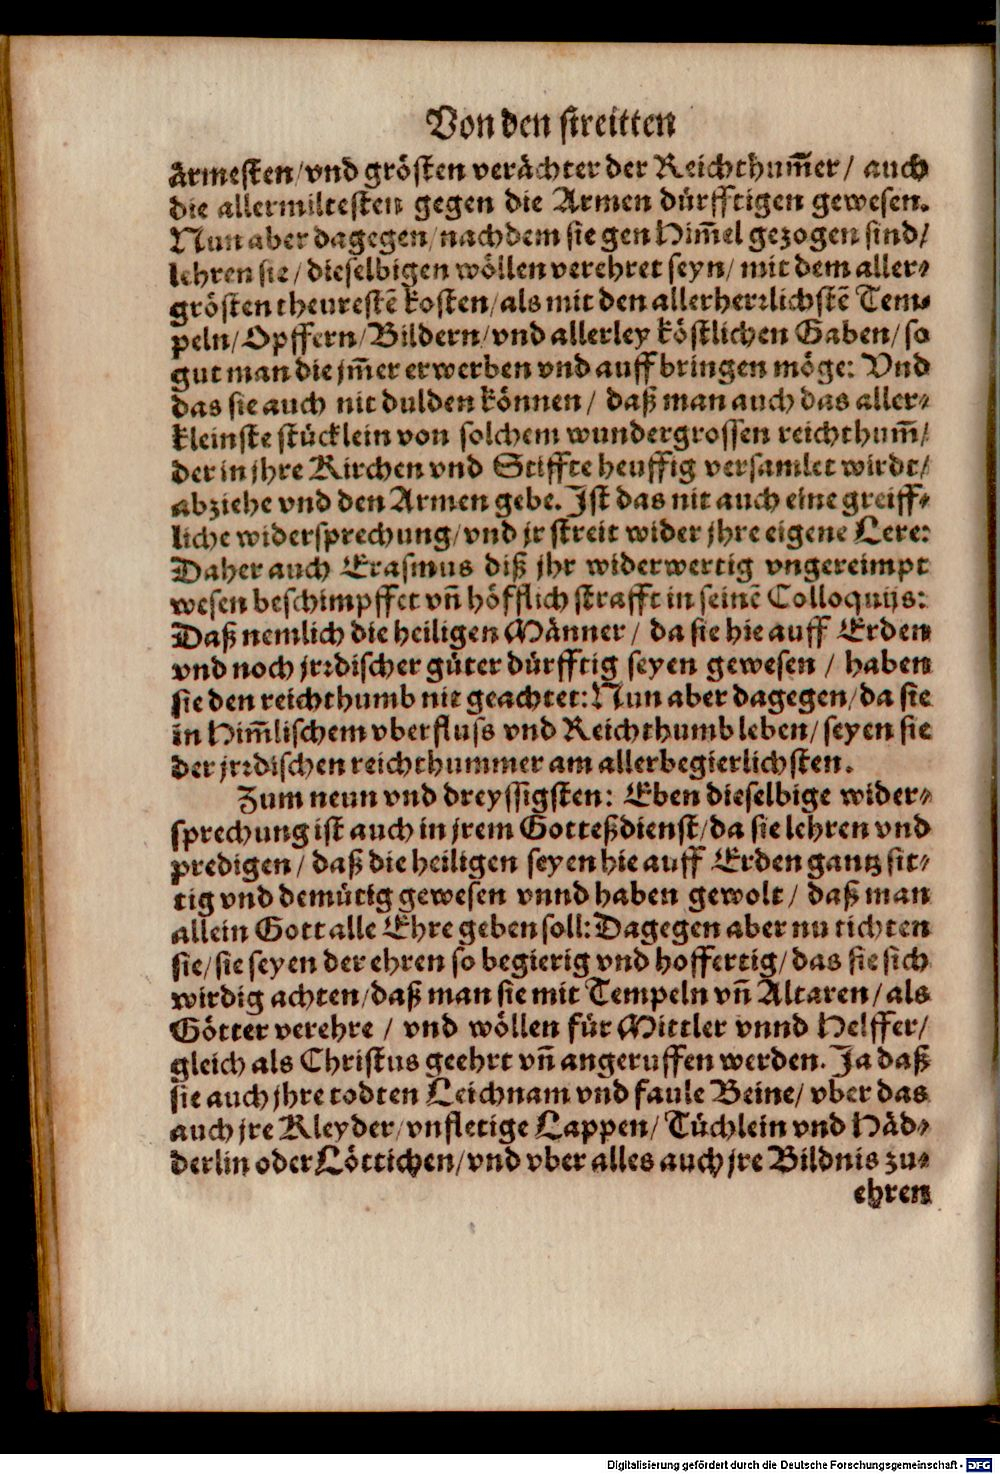 Von den streitten
ärmesten/vnd grösten verächter der Reichthum̃er/ auch
die allermiltesten gegen die Armen dürfftigen gewesen.
Nun aber dagegen/nachdem sie gen Him̃el gezogen sind/
lehren sie/dieselbigen wöllen verehret seyn/ mit dem aller-
grösten theurestẽ kosten/als mit den allerherrlichstẽ Tem-
peln/Opffern/Bildern/vnd allerley köstlichen Gaben/so
gut man die jm̃er erwerben vnd auff bringen möge: Vnd
das sie auch nit dulden können/ daß man auch das aller-
kleinste stücklein von solchem wundergrossen reichthum̃/
der in jhre Kirchen vnd Stiffte heuffig versamlet wirdt/
abziehe vnd den Armen gebe. Ist das nit auch eine greiff-
liche widersprechung/vnd jr streit wider jhre eigene Lere:
Daher auch Erasmus diß jhr widerwertig vngereimpt
wesen beschimpffet vñ höfflich strafft in seinẽ Colloquijs:
Daß nemlich die heiligen Männer/ da sie hie auff Erden
vnd noch jrrdischer güter dürfftig seyen gewesen / haben
sie den reichthumb nit geachtet: Nun aber dagegen/da sie
in Him̃lischem vberfluss vnd Reichthumb leben/ seyen sie
der jrrdischen reichthummer am allerbegierlichsten.
Zum neun vnd dreyssigsten: Eben dieselbige wider-
sprechung ist auch in jrem Gotteßdienst/da sie lehren vnd
predigen/ daß die heiligen seyen hie auff Erden gantz sit-
tig vnd demütig gewesen vnnd haben gewolt/ daß man
allein Gott alle Ehre geben soll: Dagegen aber nu tichten
sie/sie seyen der ehren so begierig vnd hoffertig/das sie sich
wirdig achten/daß man sie mit Tempeln vñ Altaren/als
Götter verehre / vnd wöllen für Mittler vnnd Helffer/
gleich als Christus geehrt vñ angeruffen werden. Ja daß
sie auch jhre todten Leichnam vnd faule Beine/ vber das
auch jre Kleyder/vnfletige Lappen/ Tüchlein vnd Häd-
derlin oder Löttichen/vnd vber alles auch jre Bildnis zu-
ehren
Digitalisierung gefördert durch die Deutsche Forschungsgemeinschaft - DFG